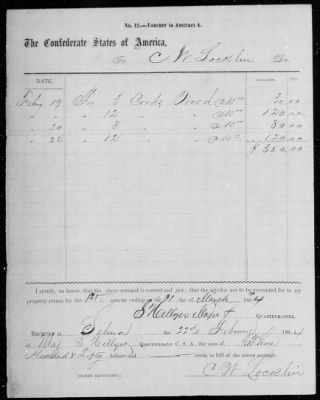 No. 12.—Voucher to Abstract A.
The Confederate States of America,
To C W Locklin Dr.
DATE. DOLLARS. CTS.
Feby 19 For 3 Cords Wood @ 10 00 30 00
" " 12 " " @ 10 00 120 00
" 20 " 8 " " @ 10 00 80 00
" 22 " 12 " " @ 10 00 120 00
$ 350.00
I certify, on honor, that the above account is correct and just; that the articles are to be accounted for in my
property return for the 1st quarter ending on the 31 day of March 1864
S Hillyer Major & QUARTERMASTER.
RECEIVED at Selma the 22nd February 1864
of Maj S Hillyer, Quartermaster C. S. A., the sum of Three
Hundred & Fifty dollars and cents, in full of the above account.
C. W. Locklin
[SIGNED DUPLICATES.]